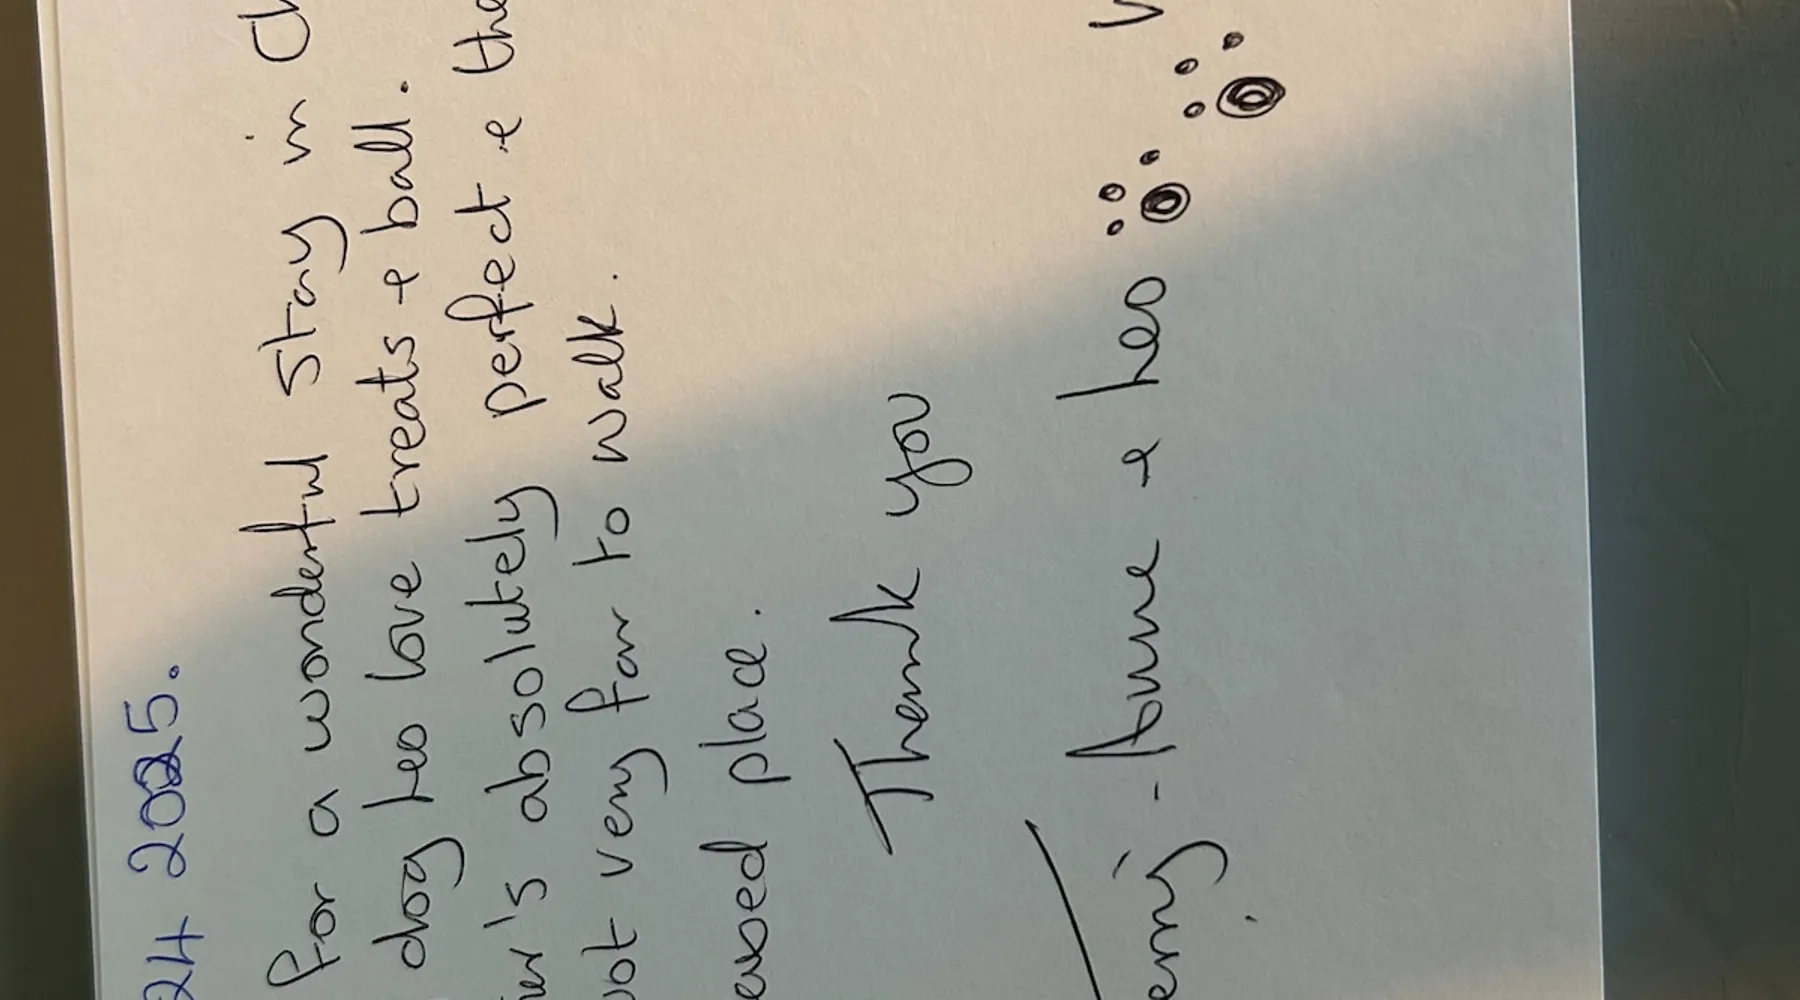 24 2025.
for a wonderful stay in Ch
dog Leo love treats & ball.
er's absolutely perfect & the
not very far to walk.
place.
Thank you
- Anne & Leo